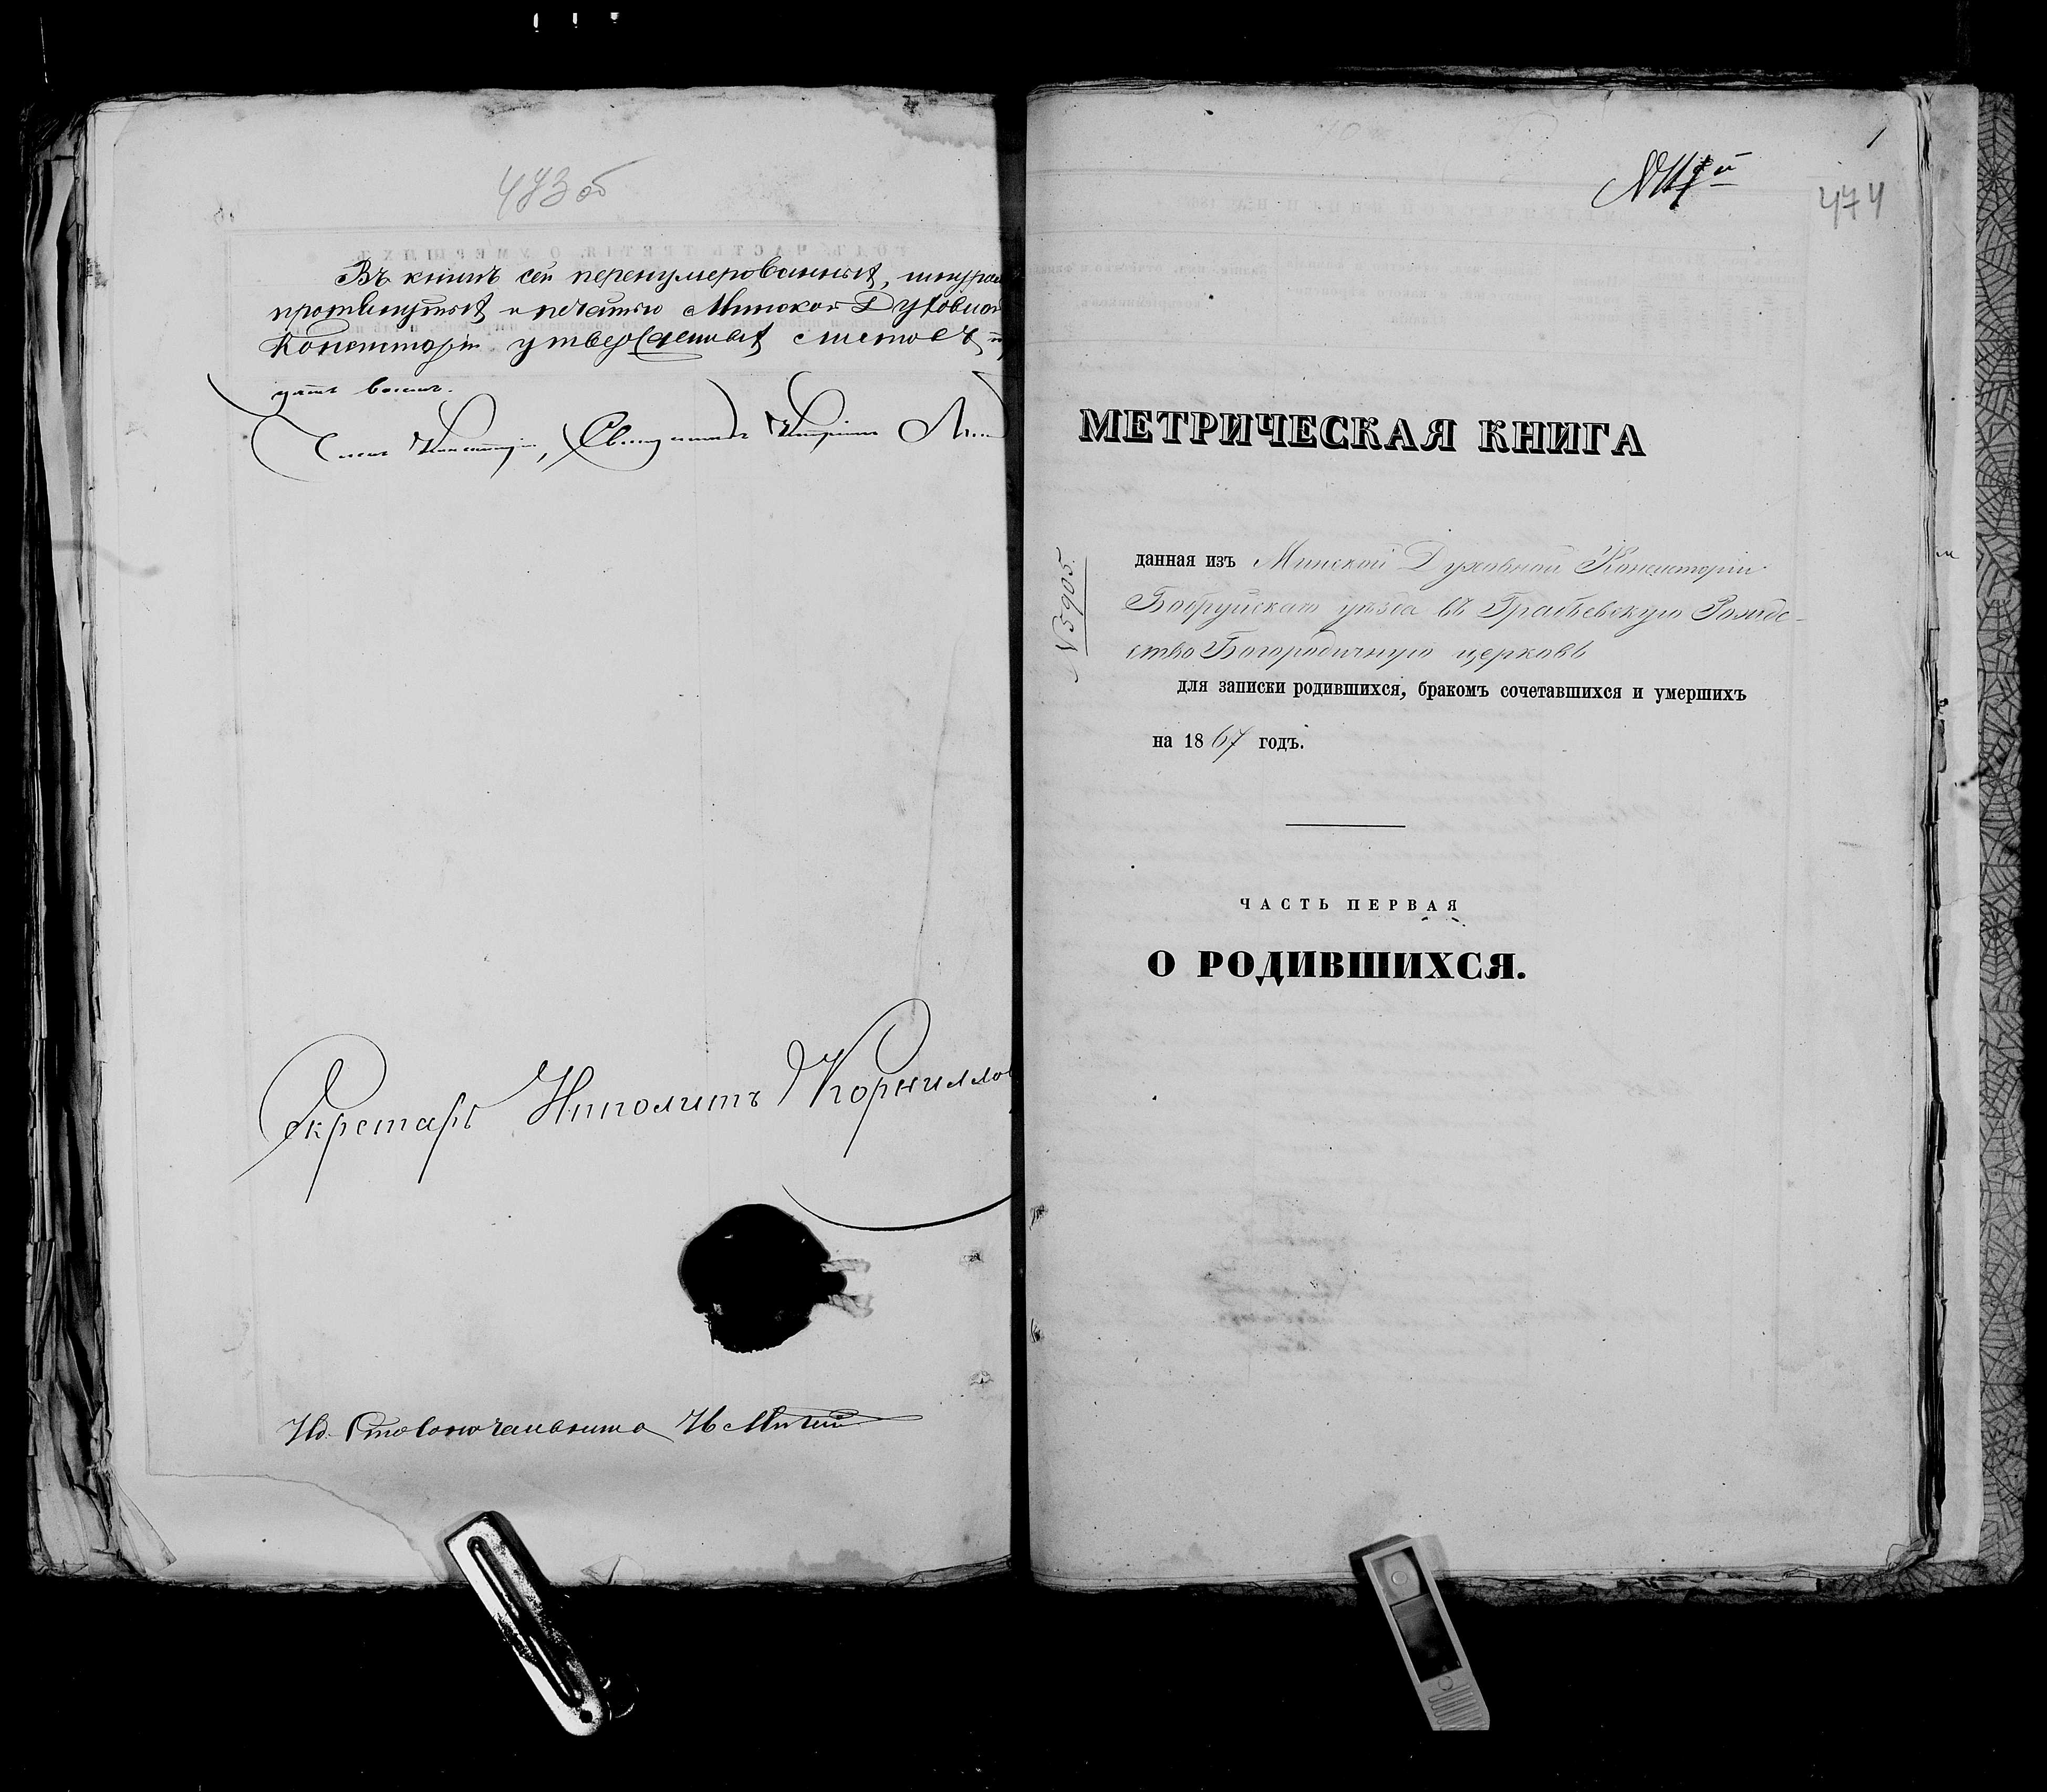 473 об
Въ книгѣ сей перенумерованныхъ, шнуром
протянутыхъ и печатью Минской Духовной
Консисторіи утвержденныхъ листовъ
цать восемь.
Членъ Консисторіи, Священникъ
Секретарь Иполитъ Корнилов
Ид. Столоначальника
1
474
МЕТРИЧЕСКАЯ КНИГА
№ 5905.
данная изъ Минской Духовной Консисторіи
Бобруйскаго уѣзда въ Грабьевскую Рождe-
ство Богородичную церковь
для записки родившихся, бракомъ сочетавшихся и умершихъ
на 1867 годъ.
ЧАСТЬ ПЕРВАЯ
О РОДИВШИХСЯ.